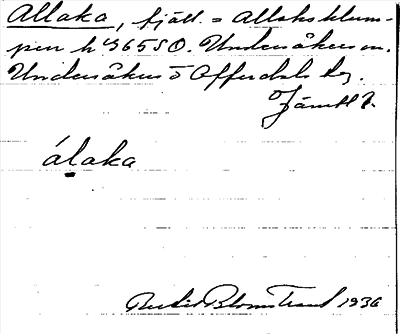 Allaka, fjäll. = Allaksklum-
pen h 46 S O. Undersåkers sn.
Undersåkers o Offerdals tg.
Jämtl l.
álaka
Blomstrand 1936